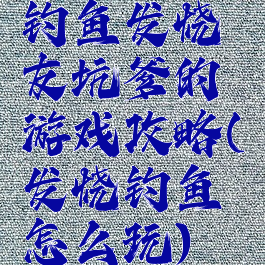 钓鱼发烧
友坑爹的
游戏攻略(
发烧钓鱼
怎么玩)